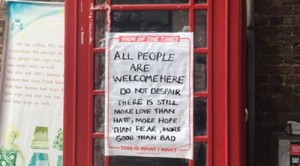 SIGN OF THE TIMES
ALL PEOPLE
ARE
WELCOME HERE
DO NOT DESPAIR
THERE IS STILL
MORE LOVE THAN
HATE, MORE HOPE
THAN FEAR, MORE
GOOD THAN BAD
THIS IS WHAT I WANT